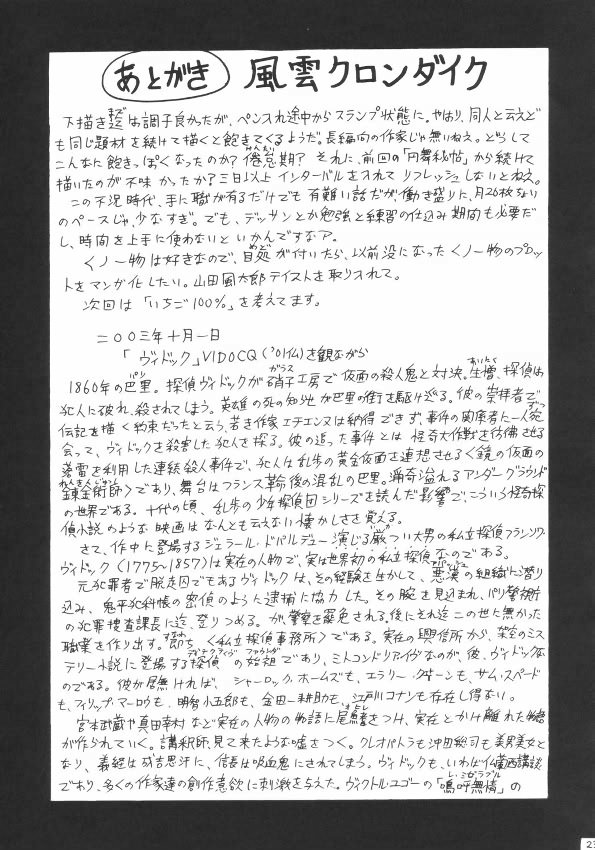 あとがき 風雲クロンダイク
下描き迄は調子良かったが、ペン入れ途中からスランプ状態に。やはり、同人と云えど
も同じ題材を続けて描くと飽きてくるようだ。長編向の作家じゃ無いねえ。どうして
こんなに飽きっぽくなったのか?倦怠期?それに、前回の「円舞秘帖」から続けて
描いたのが不味かったか?三日以上インターバルを入れてリフレッシュしないとねえ。
この不況時代、手に職が有るだけでも有難い話だが、働き盛りに、月26枚ちょり
のペースじゃ、少なすぎ。でも、デッサンとか勉強と練習の仕込み期間も必要だ
し、時間を上手に使わないといかんですなア。
くノ一物は好きなので、目処が付いたら、以前没になったくノ一物のプロッ
トをマンガ化したい。山田風太郎テイストを取り入れて。
次回は「いちご100%」を考えてます。
二〇〇三年十月一日
「ヴィドック」VIDOCQ('01仏)を観ながら
1860年の巴里。探偵ヴィドックが硝子工房で仮面の殺人鬼と対決。生憎、探偵は
犯人に破れ、殺されてしまう。英雄の死の知らせが巴里の街を駆け巡る。彼の崇拝者で
伝記を描く約束だったと云う、若き作家エチエンヌは納得できず、事件の関係者に一人宛
会って、ヴィドックを殺害した犯人を探る。彼の追った事件とは怪奇大作戦を彷彿させる
落雷を利用した連続殺人事件で、犯人は乱歩の黄金仮面を連想させる〈鏡の仮面の
錬金術師〉であり、舞台はフランス革命後の混乱の巴里。猟奇溢れるアンダーグラウンド
の世界である。十代の頃、乱歩の少年探偵団シリーズを読んだ影響で、こういう怪奇探
偵小説のような映画はなんとも云えない懐かしさを覚える。
さて、作中に登場するジェラール・ドパルデュー演じる厳つい大男の私立探偵フランソワ・
ヴィドック(1775~1857)は実在の人物で、実は世界初の私立探偵なのである。
元犯罪者で脱走囚でもあるヴィドックは、その経験を生かして、悪漢の組織に潜り
込み、鬼平犯科帳の密偵のように逮捕に協力した。その腕を見込まれ、パリ警察庁
の犯罪捜査課長に迄、登りつめる。が、警察を罷免される。後にそれ迄この世に無かった
職業を作り出す。即ち〈私立探偵事務所〉である。実在の興信所から、架空のミス
テリー小説に登場する探偵の始祖であり、ミトコンドリアイヴなのが、彼、ヴィドックな
のである。彼が居無ければ、シャーロック・ホームズも、エラリー・クイーンも、サム・スペード
も、フィリップ・マーロウも、明智小五郎も、金田一耕助も、江戸川コナンも存在し得ない。
宮本武蔵や真田幸村など実在の人物の物語に尾鰭をつけ、実在とかけ離れた物語
が作られていく。講釈師、見て来たような嘘をつく。クレオパトラも沖田総司も美男美女と
なり、義経は成吉思汗に、信長は吸血鬼にされてしまう。ヴィドックも、いわば仏蘭西講談
であり、多くの作家達の創作意欲に刺激を与えた。ヴィクトル・ユゴーの「嗚呼無情」の